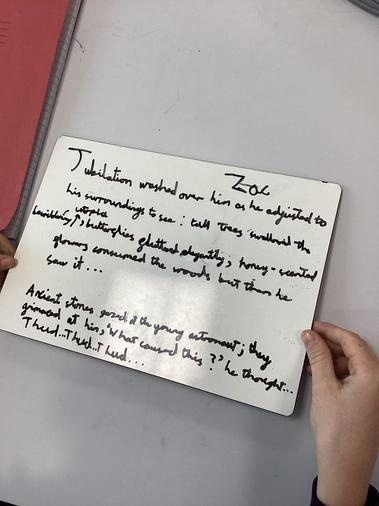 Zac
Jubilation washed over him as he adjusted to
his surroundings to see : tall trees swallowed the
utopia
; butterflies fluttered elegantly ; honey-scented
flowers consumed the woods but then he
saw it...
Ancient stones gazed at the young astronaut ; they
grimaced at him, 'What caused this?' he thought...
Thud...Thud...Thud...